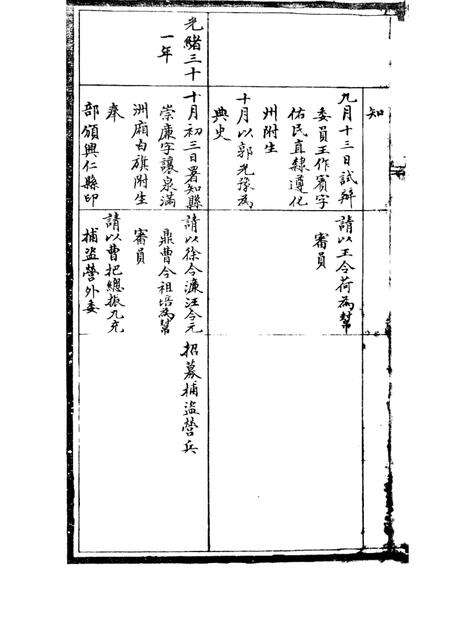 知
九月十三日試辦
委員王作賓字
佑民直隸遵化
州附生
十月以郭光豫為
典史
請以王令荷為幫
審員
光緒三十
一年
十月初三日署知縣
崇廉字讓泉滿
洲廂白旗附生
奉
部頒興仁縣印
請以徐令濂汪令元
鼎曹令祖培為幫
審員
請以曹把總振九充
捕盜營外委
招募捕盜營兵